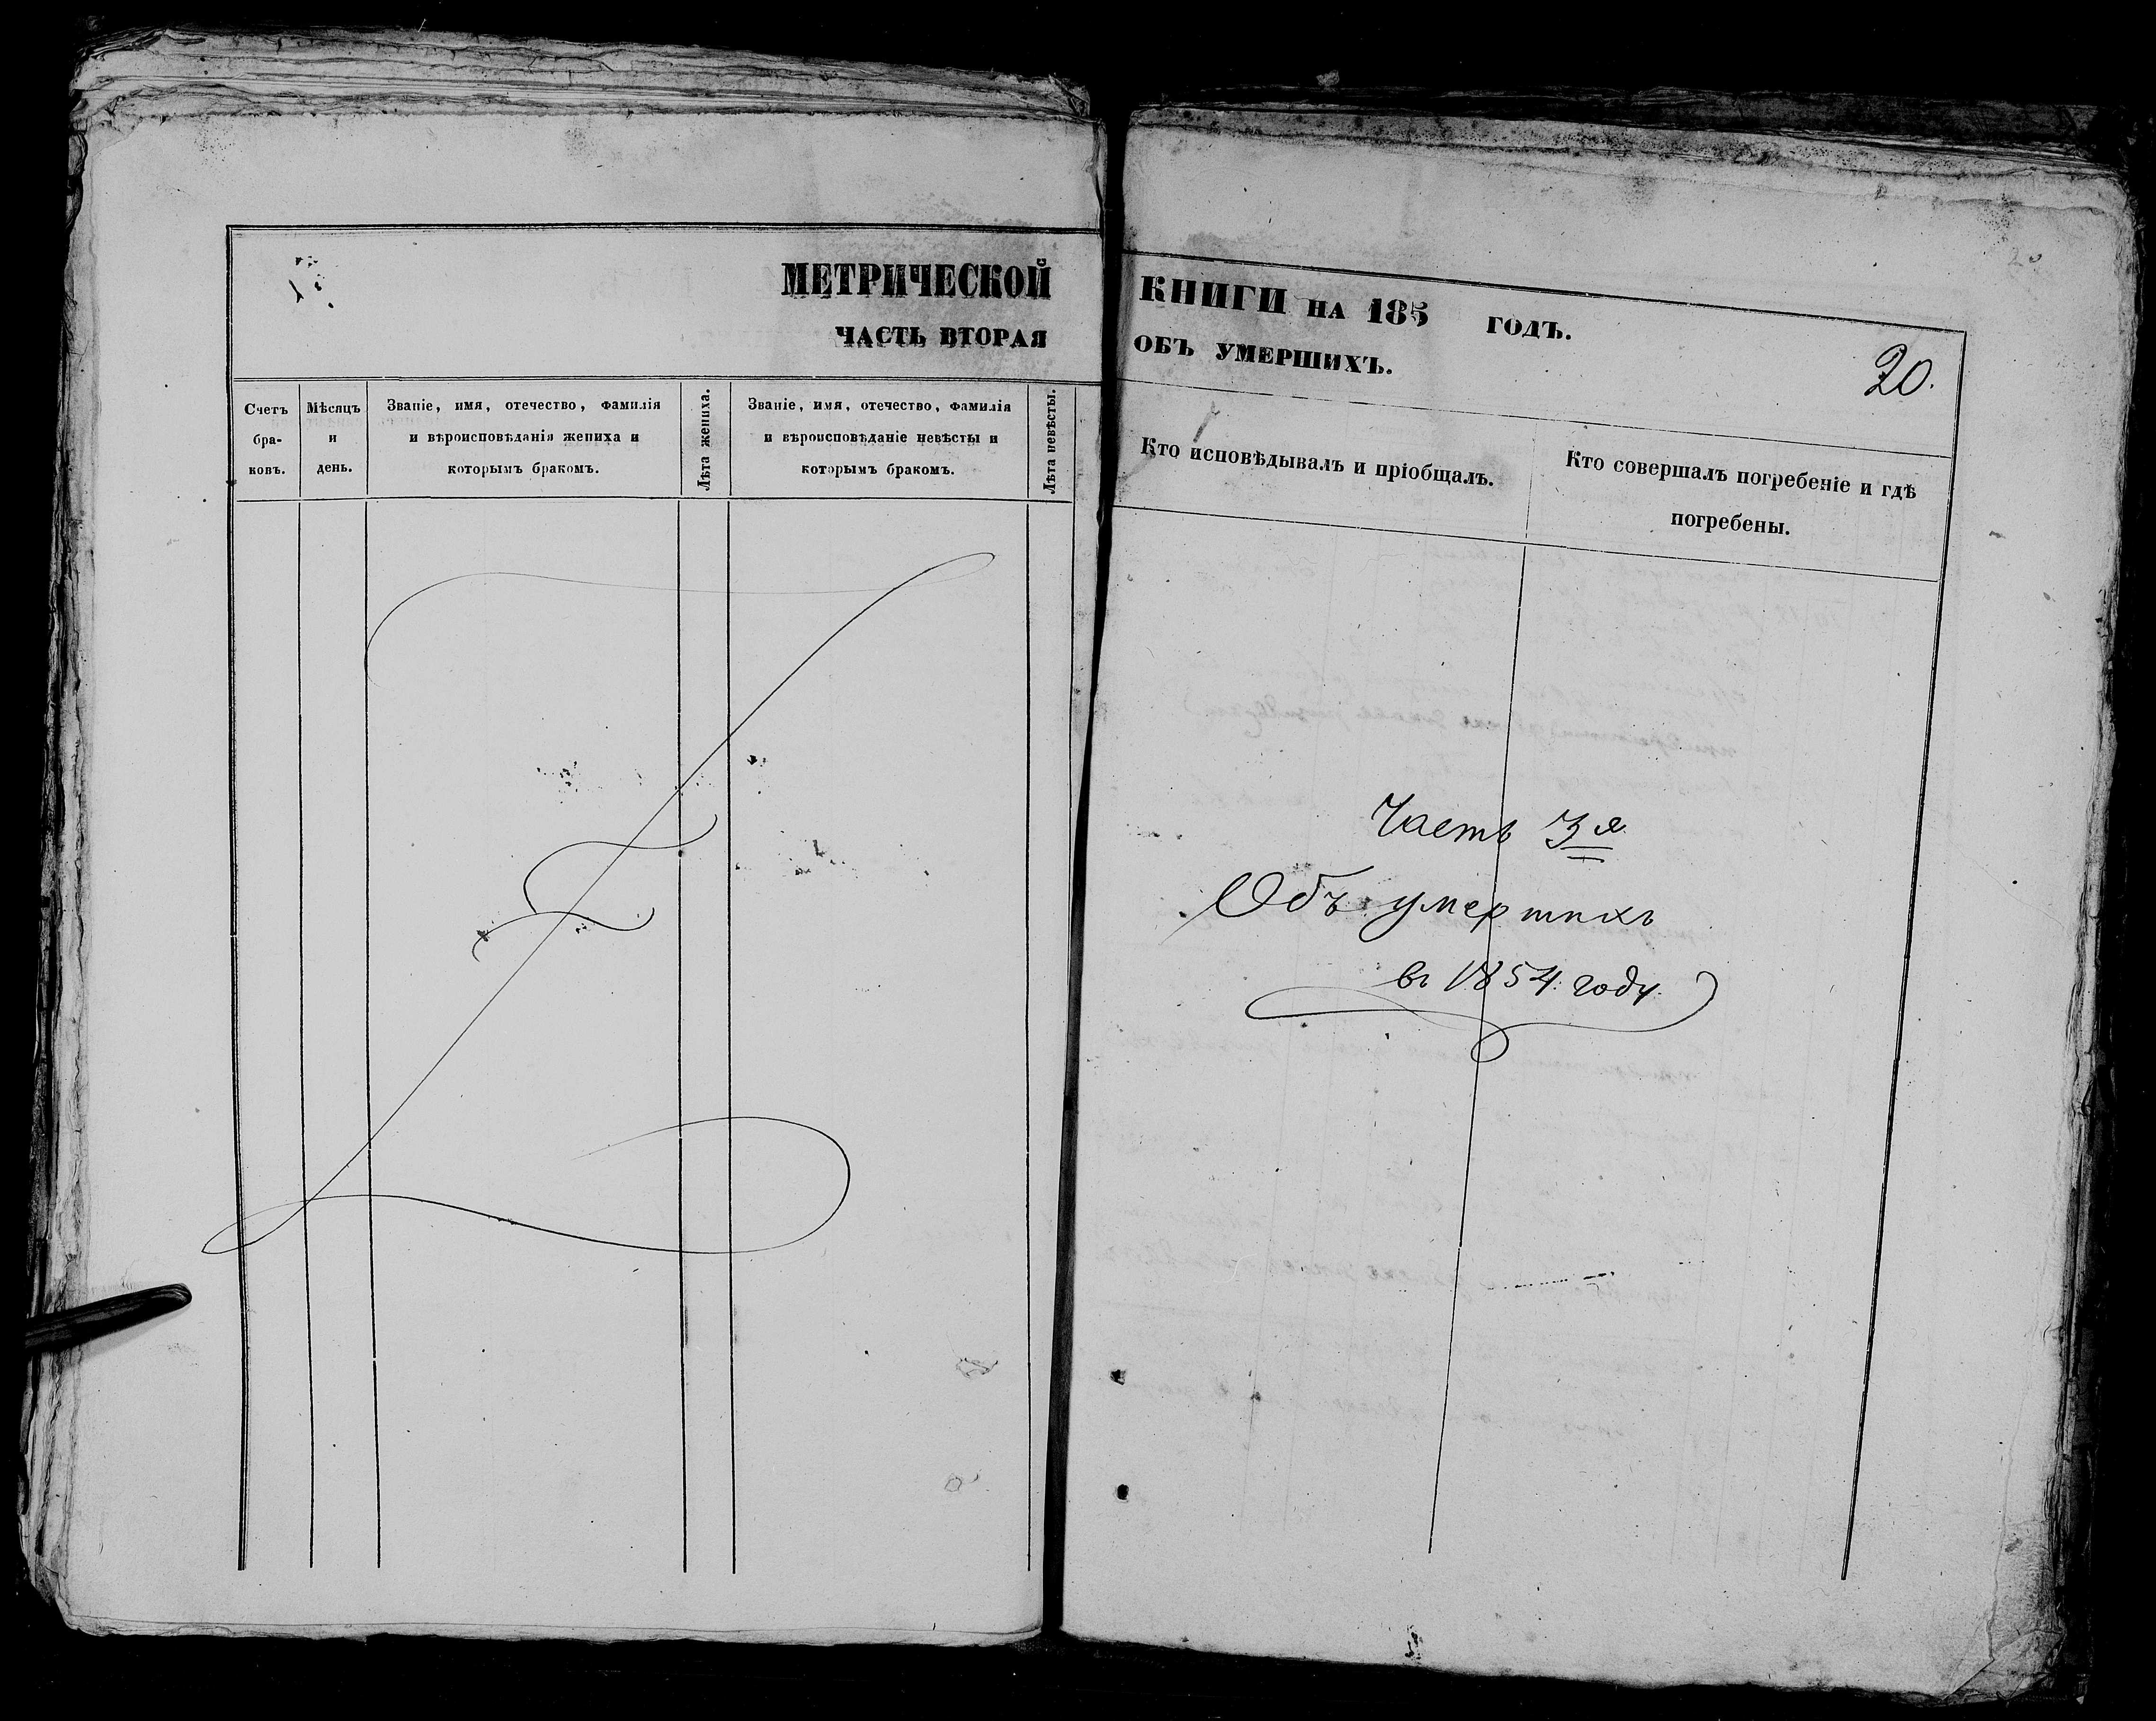 МЕТРИЧЕСКОЙ
ЧАСТЬ ВТОРАЯ
Счетъ бра-ковъ.
Мѣсяцъ и день.
Званіе, имя, отечество, фамилія
и вѣроисповѣданія жениха и
которымъ бракомъ.
Лѣта жениха.
Званіе, имя, отечество, фамилія
и вѣроисповѣданіе невѣсты и
которымъ бракомъ.
Лѣта невѣсты.
КНИГИ НА 185 ГОДЪ.
ОБЪ УМЕРШИХЪ.
20.
Кто исповѣдывалъ и пріобщалъ.
Кто совершалъ погребеніе и гдѣ
погребены.
Часть 3я
Объ умершихъ
въ 1854 году.